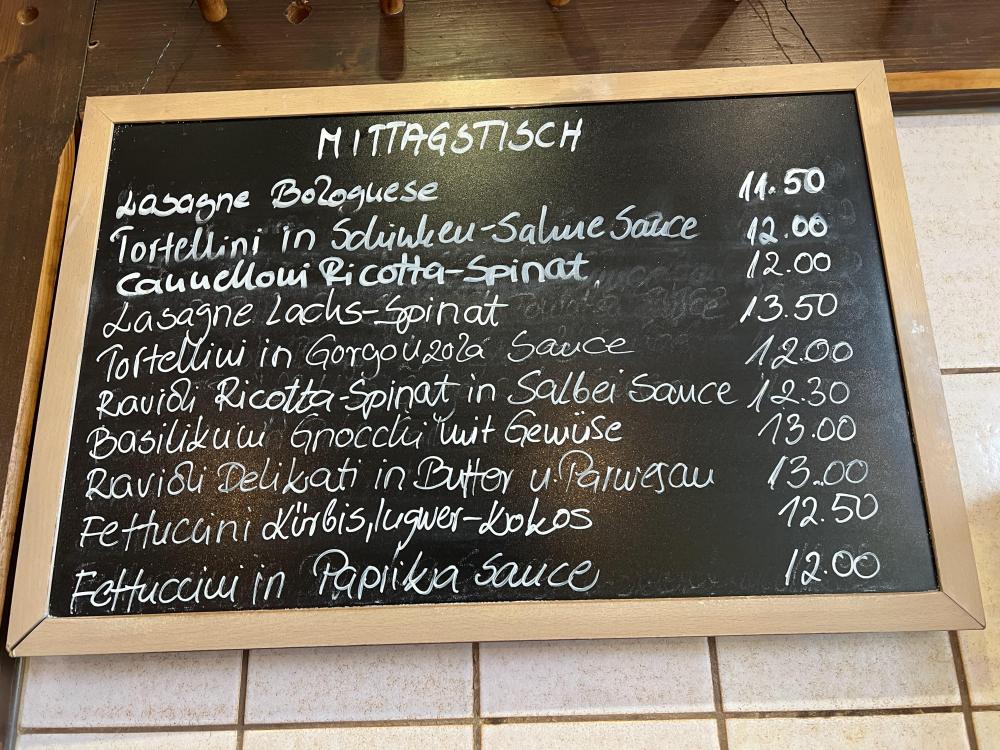 MITTAGSTISCH
Lasagne Bolognese 11.50
Tortellini in Schinken-Sahne Sauce 12.00
Cannelloni Ricotta-Spinat 12.00
Lasagne Lachs-Spinat 13.50
Tortellini in Gorgonzola Sauce 12.00
Ravioli Ricotta-Spinat in Salbei Sauce 12.30
Basilikum Gnocchi mit Gemüse 13.00
Ravioli Delikati in Butter u. Parmesan 13.00
Fettuccini Kürbis, Ingwer-Kokos 12.50
Fettuccini in Paprika Sauce 12.00